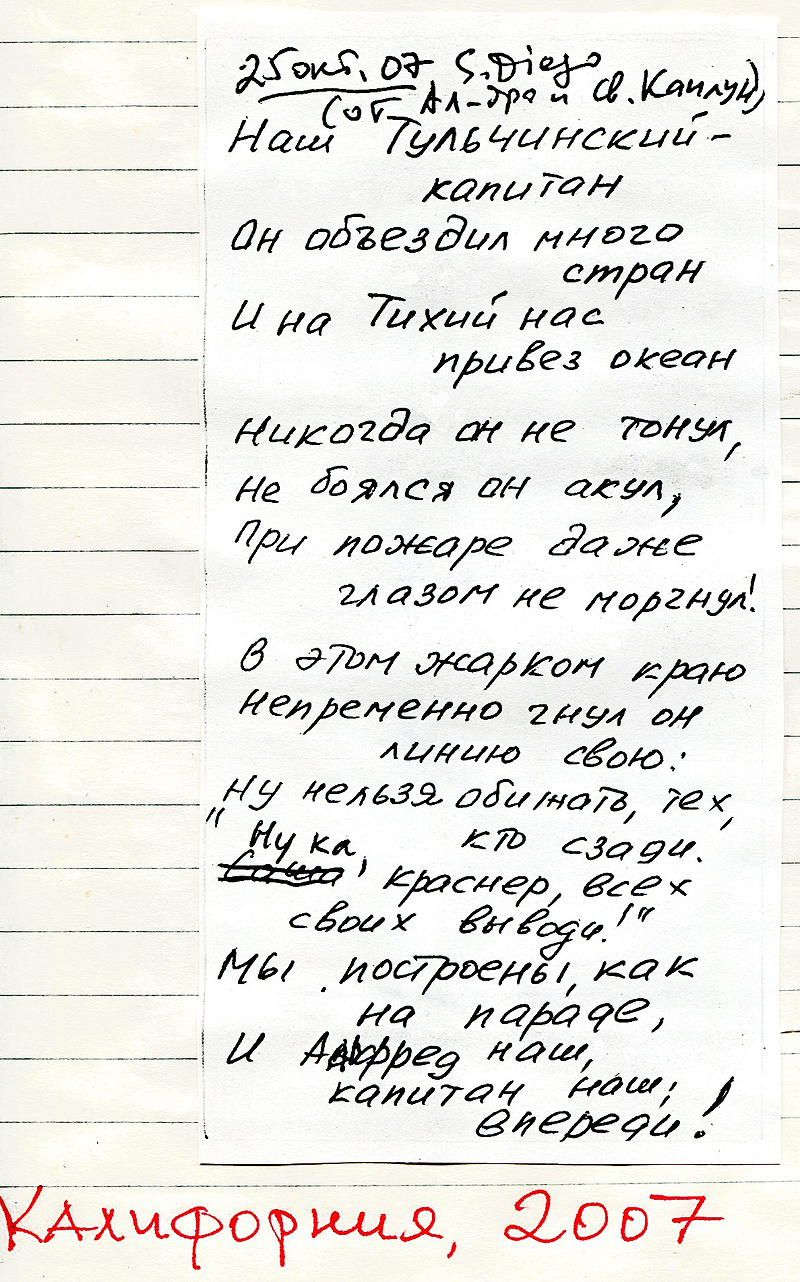 25 окт. 07, S. Diego
(от Ал-дра и Св. Каплун)
Наш Тульчинский -
капитан
Он объездил много
стран
И на Тихий нас
привез океан
Никогда он не тонул,
Не боялся он акул,
При пожаре даже
глазом не моргнул!
В этом жарком краю
Непременно гнул он
линию свою:
"Ну нельзя обижать, тех,
кто сзади.
Ну ка,
Саша
краснер, всех
своих выводи!"
Мы построены, как
на параде,
И Альфред наш,
капитан наш,
впереди!
КАЛИФОРНИЯ, 2007